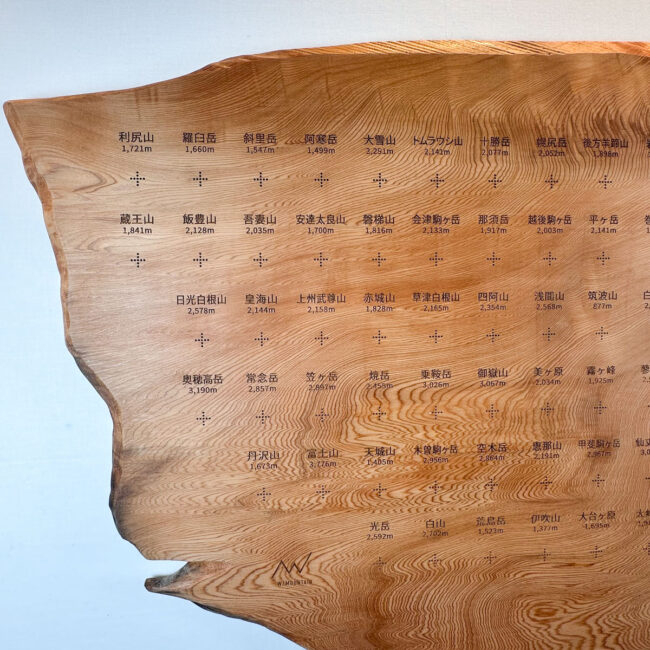 利尻山 羅臼岳 斜里岳 阿寒岳 大雪山 トムラウシ山 十勝岳 幌尻岳 後方羊蹄山
1,721m 1,660m 1,547m 1,499m 2,291m 2,141m 2,077m 2,052m 1,898m
蔵王山 飯豊山 吾妻山 安達太良山 磐梯山 会津駒ヶ岳 那須岳 越後駒ヶ岳 平ヶ岳
1,841m 2,128m 2,035m 1,700m 1,816m 2,133m 1,917m 2,003m 2,141m
日光白根山 皇海山 上州武尊山 赤城山 草津白根山 四阿山 浅間山 筑波山 白
2,578m 2,144m 2,158m 1,828m 2,165m 2,354m 2,568m 877m
奥穂高岳 常念岳 笠ヶ岳 焼岳 乗鞍岳 御嶽山 美ヶ原 霧ヶ峰 蓼
3,190m 2,857m 2,897m 2,455m 3,026m 3,067m 2,034m 1,925m
丹沢山 富士山 天城山 木曽駒ヶ岳 空木岳 恵那山 甲斐駒ヶ岳 仙丈
1,673m 3,776m 1,405m 2,956m 2,864m 2,191m 2,967m
光岳 白山 荒島岳 伊吹山 大台ヶ原
2,592m 2,702m 1,523m 1,377m 1,695m